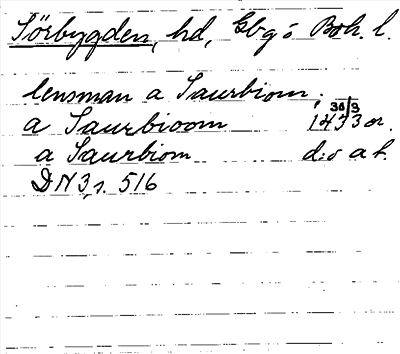 Sörbygden, hd, Gbg o Boh. l.
lensman a Saurbiom;
a Saurbioom 30/3 1433 or.
a Saurbiom d:o a f.
DN 3, s. 516